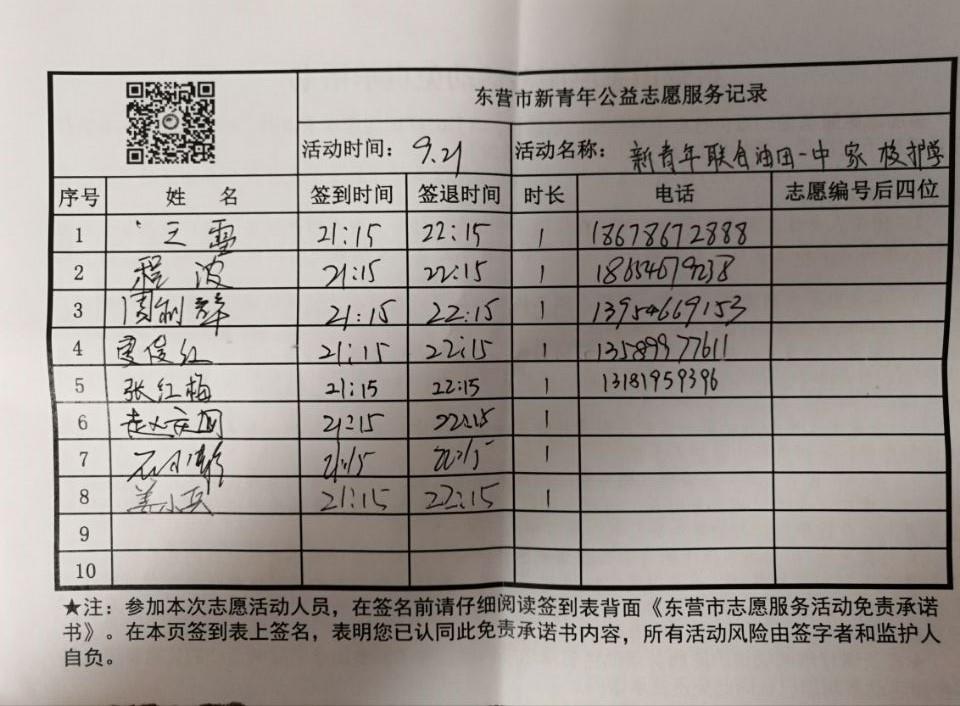 东营市新青年公益志愿服务记录
活动时间: 9.21 活动名称: 新青年联合油田一中家校护学
序号 姓 名 签到时间 签退时间 时长 电话 志愿编号后四位
1 王雪 21:15 22:15 1 18678672888
2 程波 21:15 22:15 1 18654679238
3 周利群 21:15 22:15 1 13954669153
4 红 21:15 22:15 1 13589977611
5 张红梅 21:15 22:15 1 13181959396
6 赵 21:15 22:15 1
7 21:15 22:15 1
8 姜小兵 21:15 22:15 1
9
10
★注: 参加本次志愿活动人员, 在签名前请仔细阅读签到表背面《东营市志愿服务活动免责承诺
书》。在本页签到表上签名, 表明您已认同此免责承诺书内容, 所有活动风险由签字者和监护人
自负。